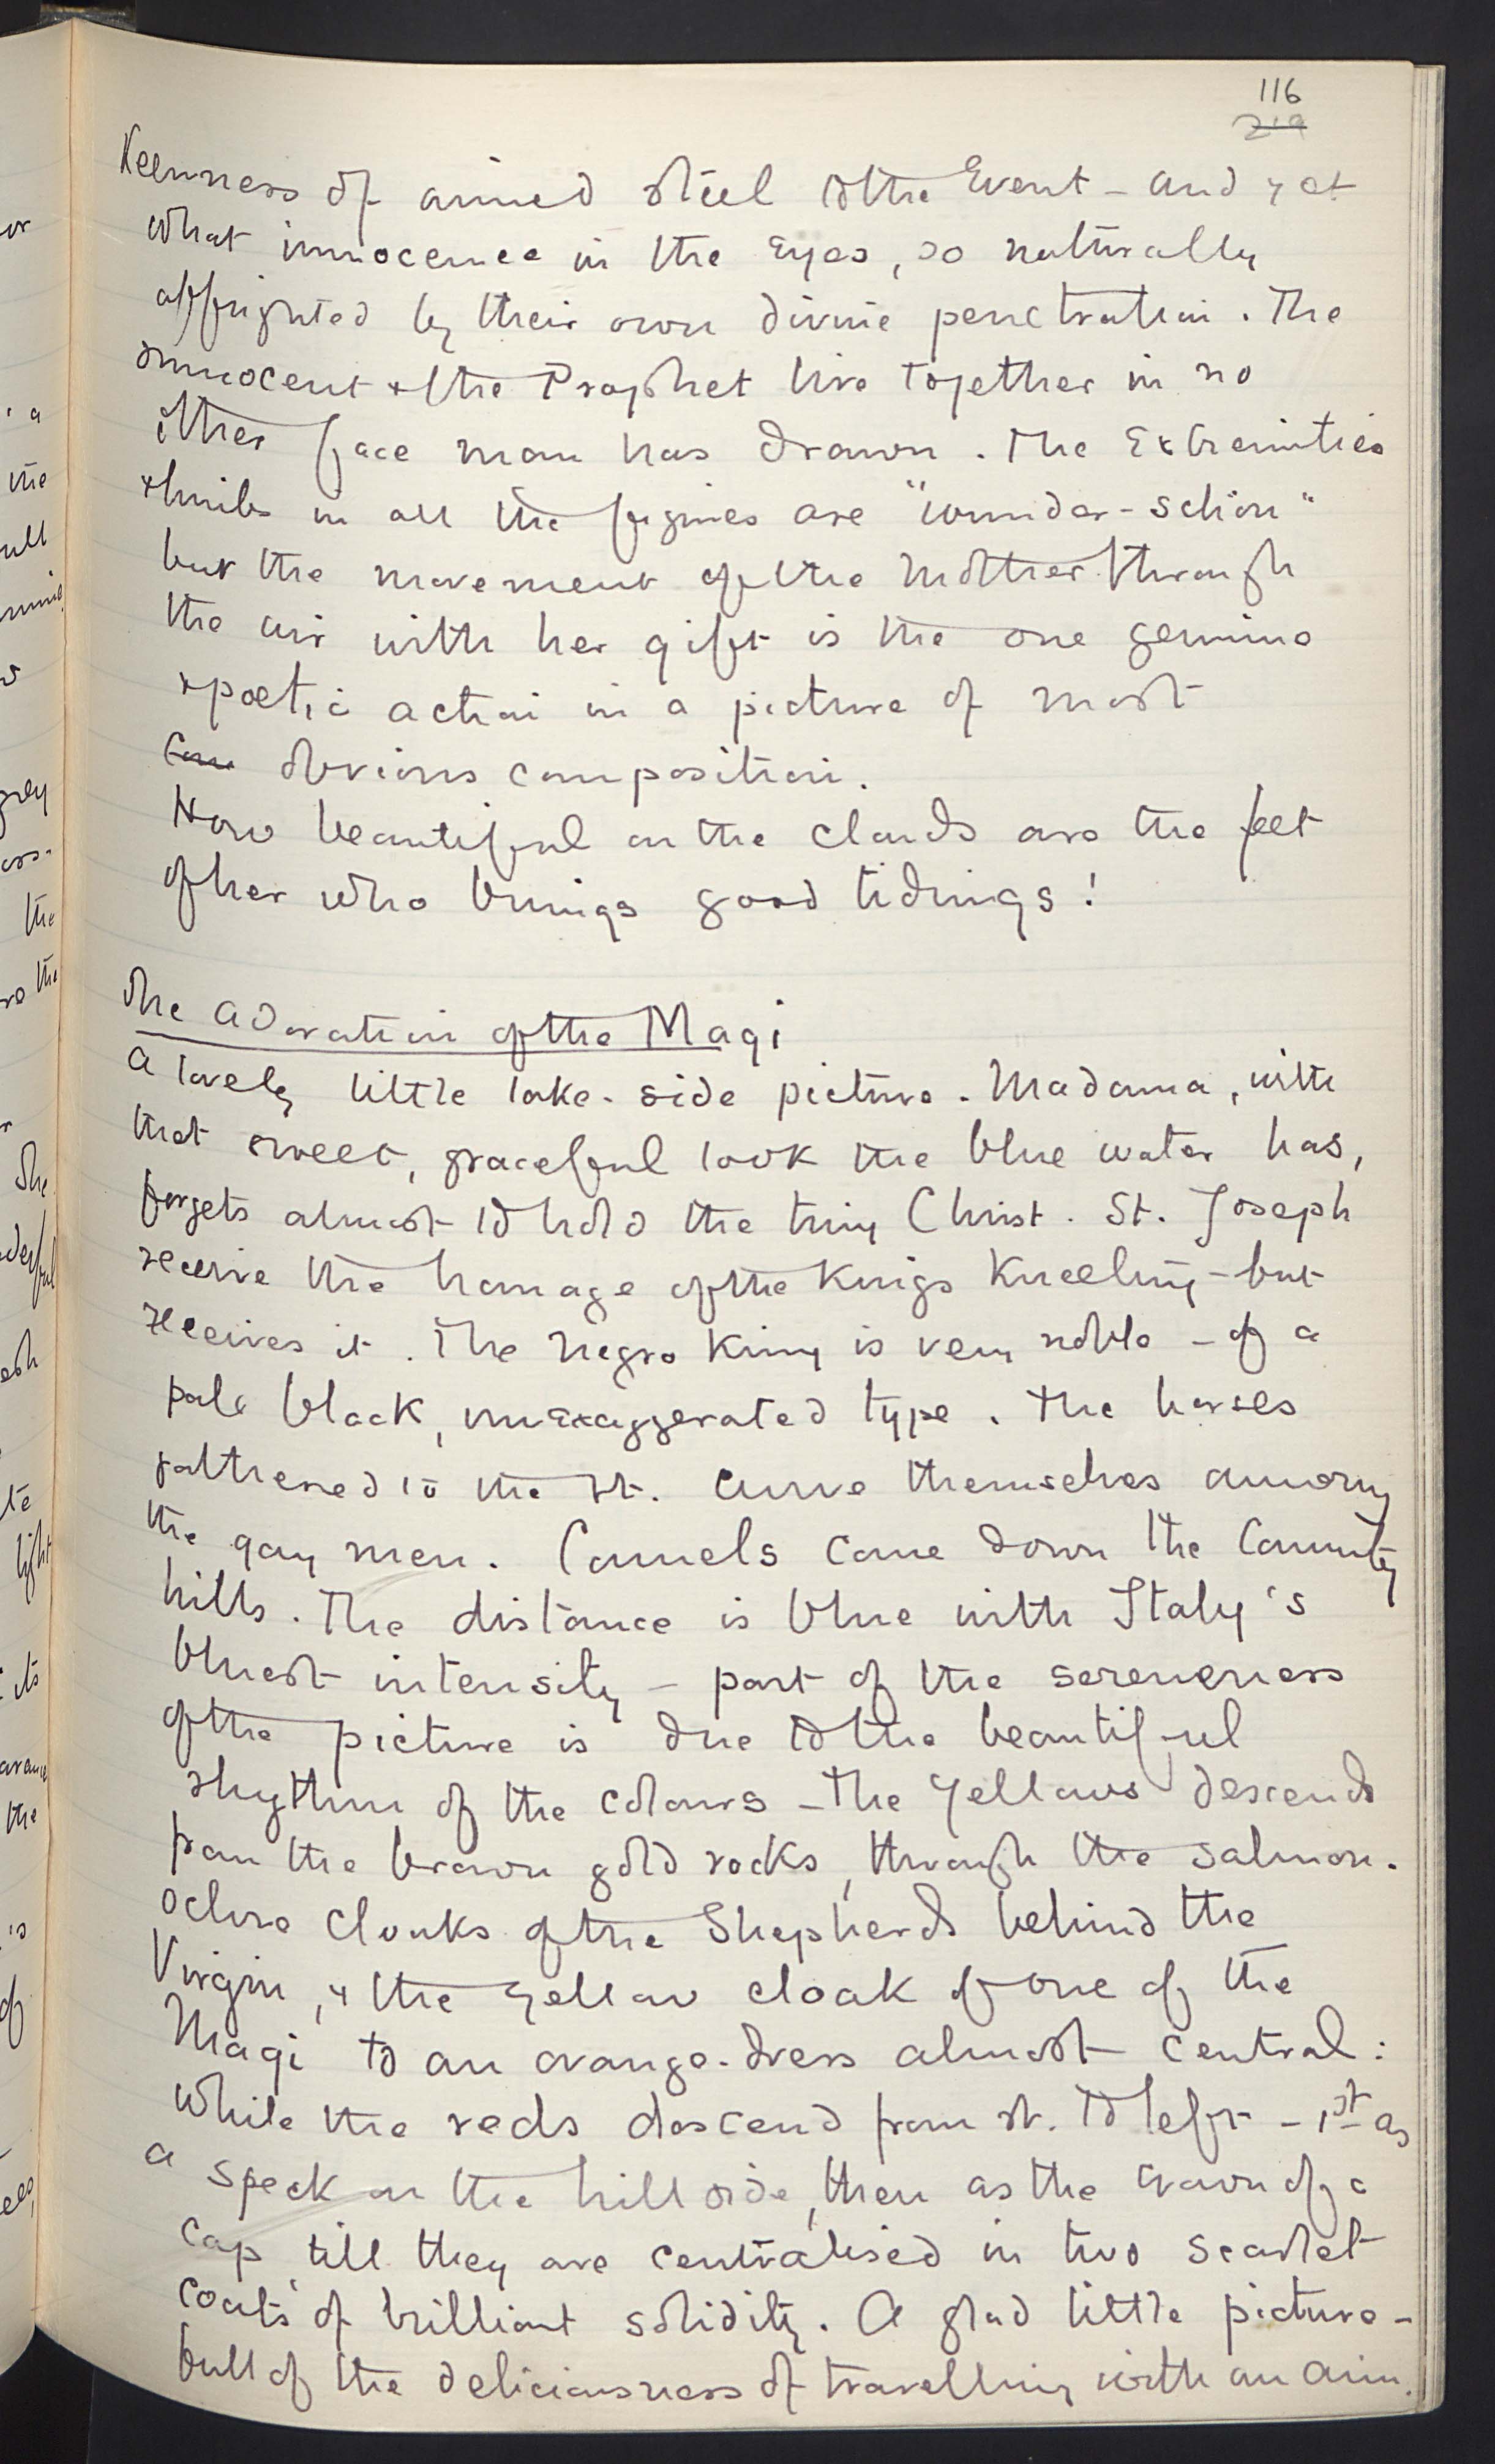 116
219
Keenness of aimed steel to the Event - and yet
what innocence in the Eyes, so naturally
affrighted by their own divine penetration. The
Innocent & the Prophet live together in no
other face man has drawn. The Extremities
& limbs in all the figures are "wunder-schön"
but the movement of the Mother through
the air with her gift is the one genuine
& poetic action in a picture of most
Com obvious composition.
How beautiful on the clouds are the feet
of her who brings good tidings!
The Adoration of the Magi
A lovely little lake-side picture. Madonna, with
that sweet, graceful look the blue water has,
forgets almost to hold the tiny Christ. St. Joseph
receive the homage of the Kings kneeling - but
receives it. The negro King is very noble - of a
pale black, unexaggerated type. The horses
gathered to the rt. curve themselves among
the gay men. Camels come down the Country
hills. The distance is blue with Italy's
bluest intensity - part of the sereneness
of the picture is due to the beautiful
rhythm of the colours - the yellows descend
from the brown gold rocks, through the salmon-
ochre cloaks of the Shepherds behind the
Virgin, & the yellow cloak of one of the
Magi to an orange-dress almost central:
while the reds descend from rt. to left - 1st as
a speck on the hill side, then as the crown of a
cap, till they are centralised in two scarlet
coats of brilliant solidity. A glad little picture -
full of the deliciousness of travelling with an aim.